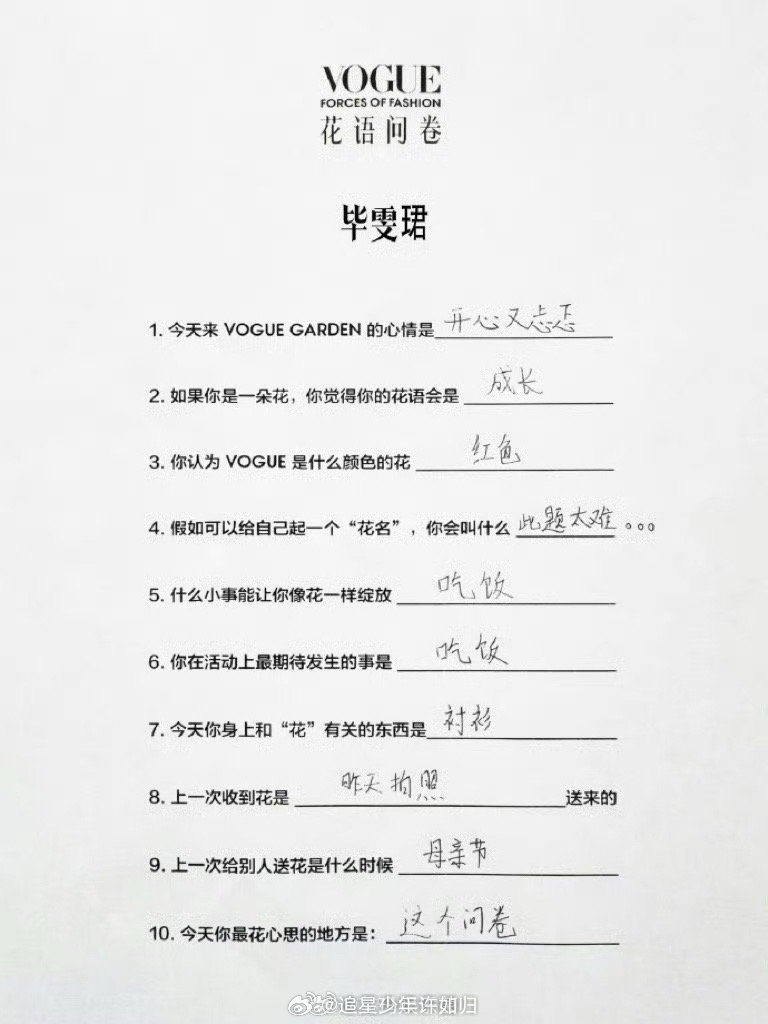 VOGUE
FORCES OF FASHION
花语问卷
毕雯珺
1. 今天来 VOGUE GARDEN 的心情是 开心又忐忑
2. 如果你是一朵花，你觉得你的花语会是 成长
3. 你认为 VOGUE 是什么颜色的花 红色
4. 假如可以给自己起一个“花名”，你会叫什么 此题太难。。。
5. 什么小事能让你像花一样绽放 吃饭
6. 你在活动上最期待发生的事是 吃饭
7. 今天你身上和“花”有关的东西是 衬衫
8. 上一次收到花是 昨天拍照 送来的
9. 上一次给别人送花是什么时候 母亲节
10. 今天你最花心思的地方是： 这个问卷
@追星少年许如归